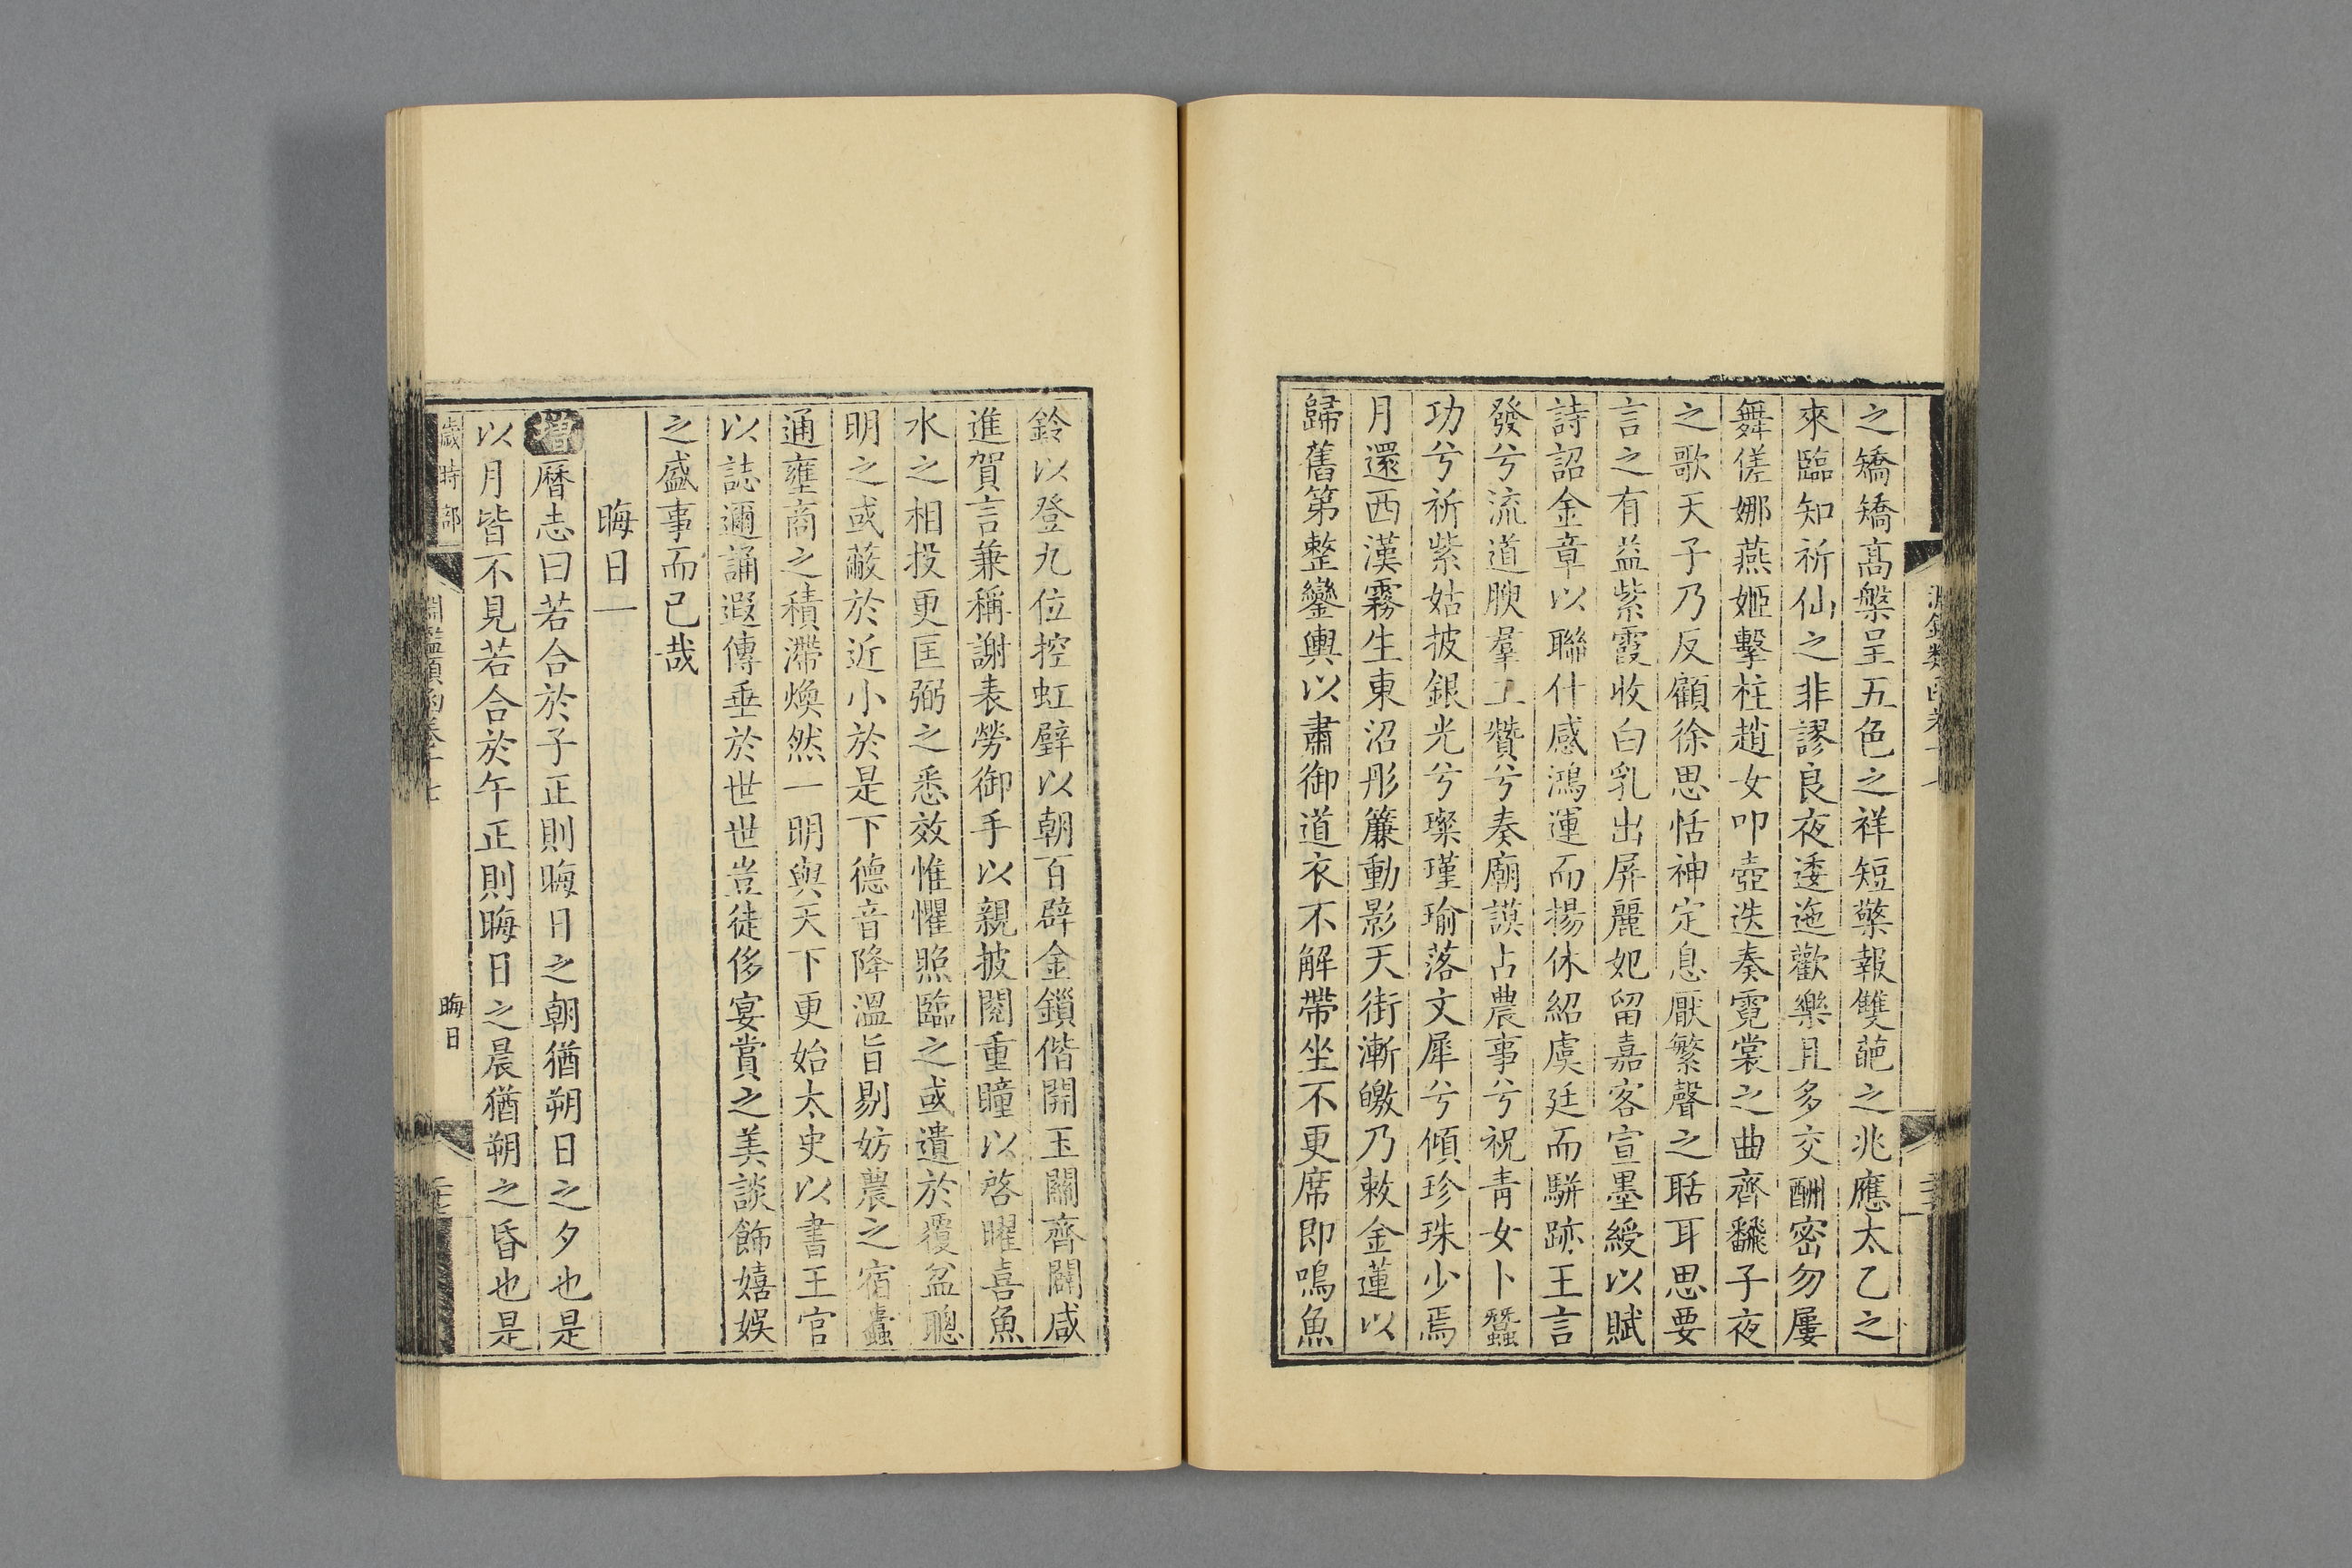 之矯矯高槃呈五色之祥短檠報雙葩之兆應太乙之
來臨知祈仙之非謬良夜逶迤歡樂且多交酬密勿屢
舞傞娜燕姬擊柱趙女叩壺迭奏霓裳之曲齊飜子夜
之歌天子乃反顧徐思恬神定息厭繁聲之聒耳思要
言之有益紫霞收白乳出屏麗妃留嘉客宣墨綬以賦
詩詔金章以聯什感鴻運而揚休紹虞廷而駢跡王言
發兮流道腴羣工贊兮奏廟謨占農事兮祝青女卜蠶
功兮祈紫姑披銀光兮璨瑾瑜落文犀兮傾珍珠少焉
月還西漢霧生東沼彤簾動影天街漸皦乃敕金蓮以
歸舊第整鑾輿以肅御道衣不解帶坐不更席即鳴魚
鈴以登九位控虹璧以朝百辟金鎖偕開玉關齊闢咸
進賀言兼稱謝表勞御手以親披閱重瞳以啓曜喜魚
水之相投更匡弼之悉效惟懼照臨之或遺於覆盆聰
明之或蔽於近小於是下德音降溫旨剔妨農之宿蠹
通壅商之積滯煥然一明與天下更始太史以書王官
以誌邇誦遐傳垂於世世豈徒侈宴賞之美談飾嬉娛
之盛事而已哉
晦日一
增曆志曰若合於子正則晦日之朝猶朔日之夕也是
以月皆不見若合於午正則晦日之晨猶朔之昏也是
歲時部
淵鑑類函卷十七
晦日